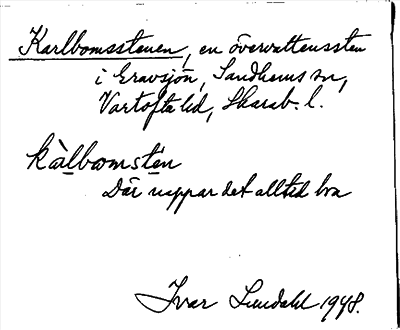 Karlbomsstenen, en övervattenssten
i Gravsjön, Sandhems sn,
Vartofta hd, Skarab. l.
kàlbωmste̍n
Där nappar det alltid bra
Ivar Lundahl 1948.